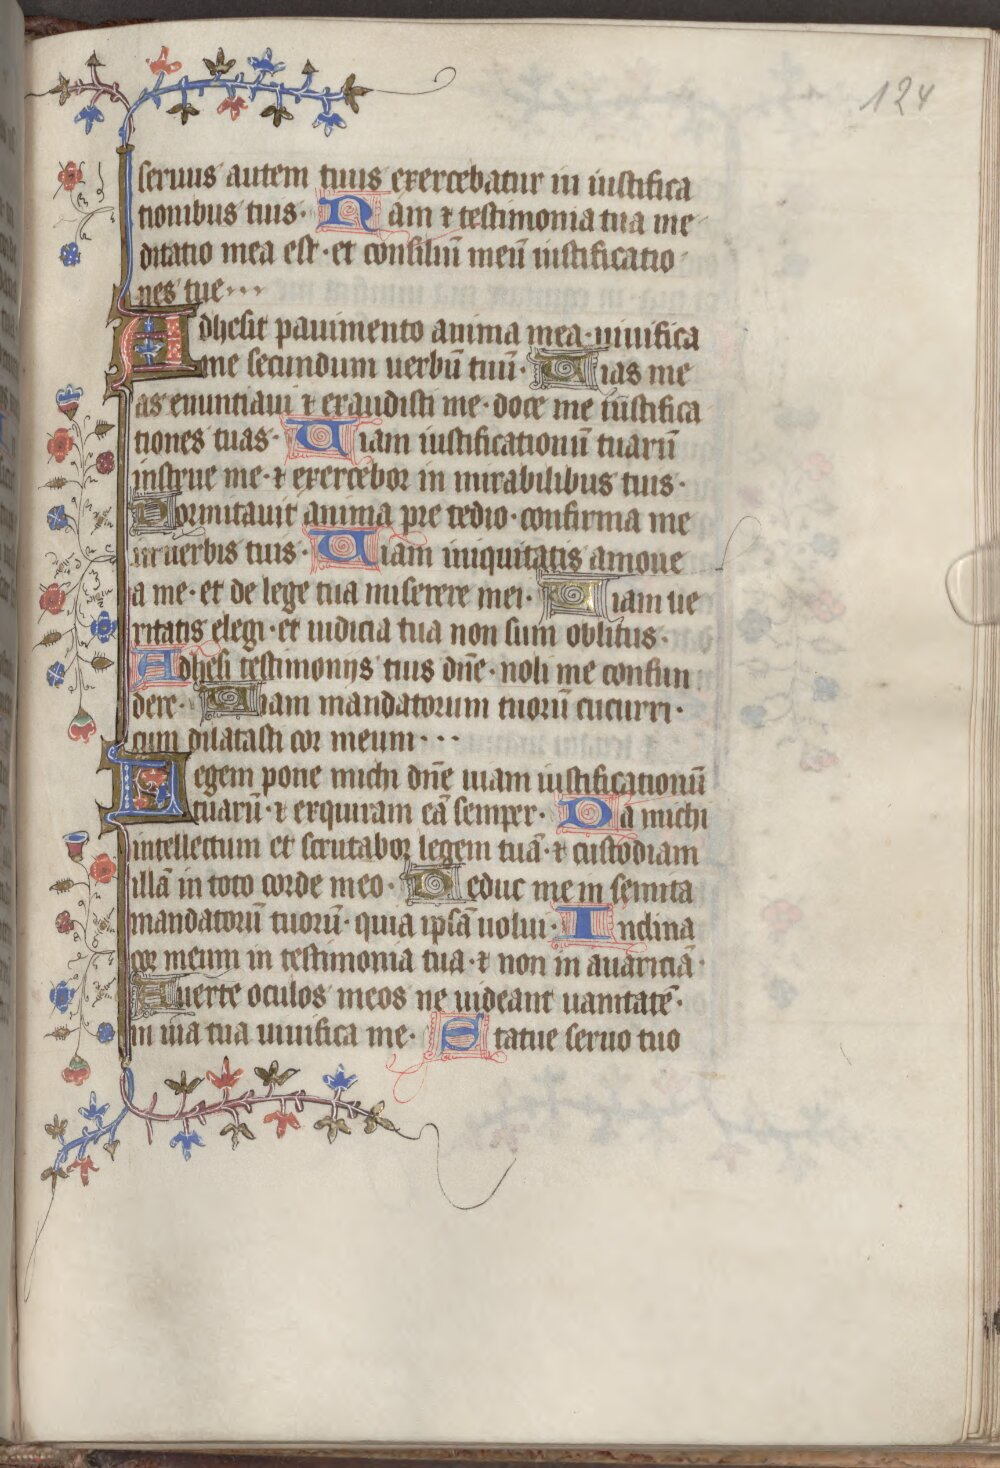 124
seruus autem tuus exercebatur in iustifica
tionibus tuis· Nam ⁊ testimonia tua me
ditatio mea est· et consiliū meū iustificatio
nes tue···
Adhesit pauimento anima mea· uiuifica
me secundum uerbū tuū· Uias me
as enuntiaui ⁊ exaudisti me· doce me iustifica
tiones tuas· Uiam iustificationū tuarū
instrue me· ⁊ exercebor in mirabilibus tuis·
Dormitauit anima pre tedio· confirma me
in uerbis tuis· Uiam iniquitatis amoue
a me· et de lege tua miserere mei· Uiam ue
ritatis elegi· et iudicia tua non sum oblitus·
Adhesi testimonijs tuis dn̄e· noli me confun
dere· Uiam mandatorum tuorū cucurri·
cum dilatasti cor meum···
Legem pone michi dn̄e uiam iustificationū
tuarū· ⁊ exquiram eā semper· Da michi
intellectum et scrutabor legem tuā· ⁊ custodiam
illā in toto corde meo· Deduc me in semita
mandatorū tuorū· quia ipsā uolui· Inclina
cor meum in testimonia tua· ⁊ non in auariciā·
Auerte oculos meos ne uideant uanitatē·
in uia tua uiuifica me· Statue seruo tuo